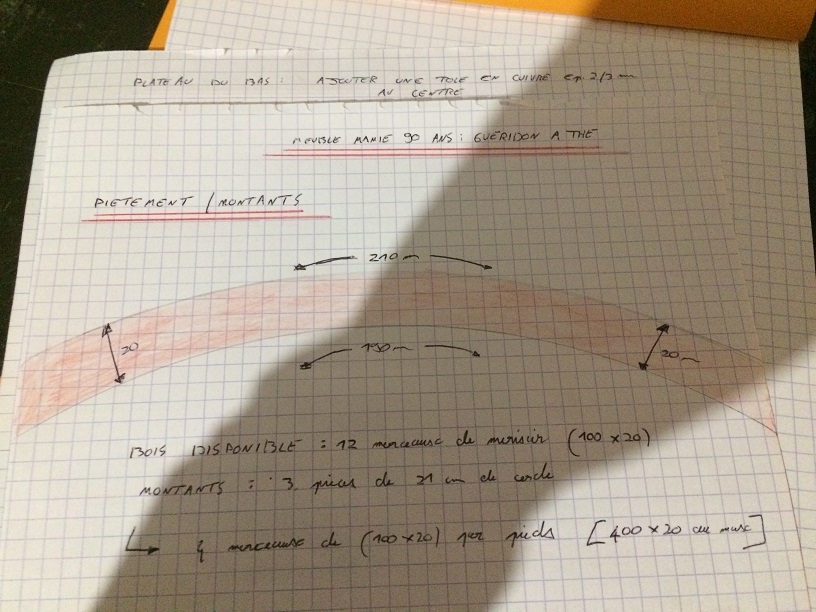 PLATEAU DU BAS : AJOUTER UNE TOLE EN CUIVRE ep. 2/3 mm
AU CENTRE
MEUBLE MAMIE 90 ANS : GUÉRIDON A THÉ
PIETEMENT / MONTANTS
210 mm
20
190 mm
20 mm
BOIS DISPONIBLE : 12 morceaux de merisier (100 x 20)
MONTANTS : 3 pièces de 21 cm de corde
4 morceaux de (100 x 20) par pieds [400 x 20 au max]